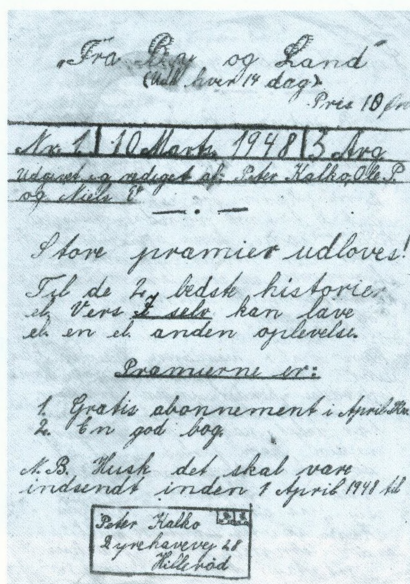 "Fra By og Land"
(Udk. hver 14 dag)
Pris 10 Øre
Nr. 1 | 10 Marts 1948 | 3 Årg
Udgivet og rediget af: Peter Kalko, Ole P.
og Niels E
Store præmier udloves!
Til de 2 bedste historier
el. Vers I selv kan lave
el. en el. anden oplevelse.
Præmierne er:
1. Gratis abonnement i April
2. En god bog.
N.B. Husk det skal være
indsendt inden 1 April 1948 til
Peter Kalko
Dyrehavevej 28
Hilleröd